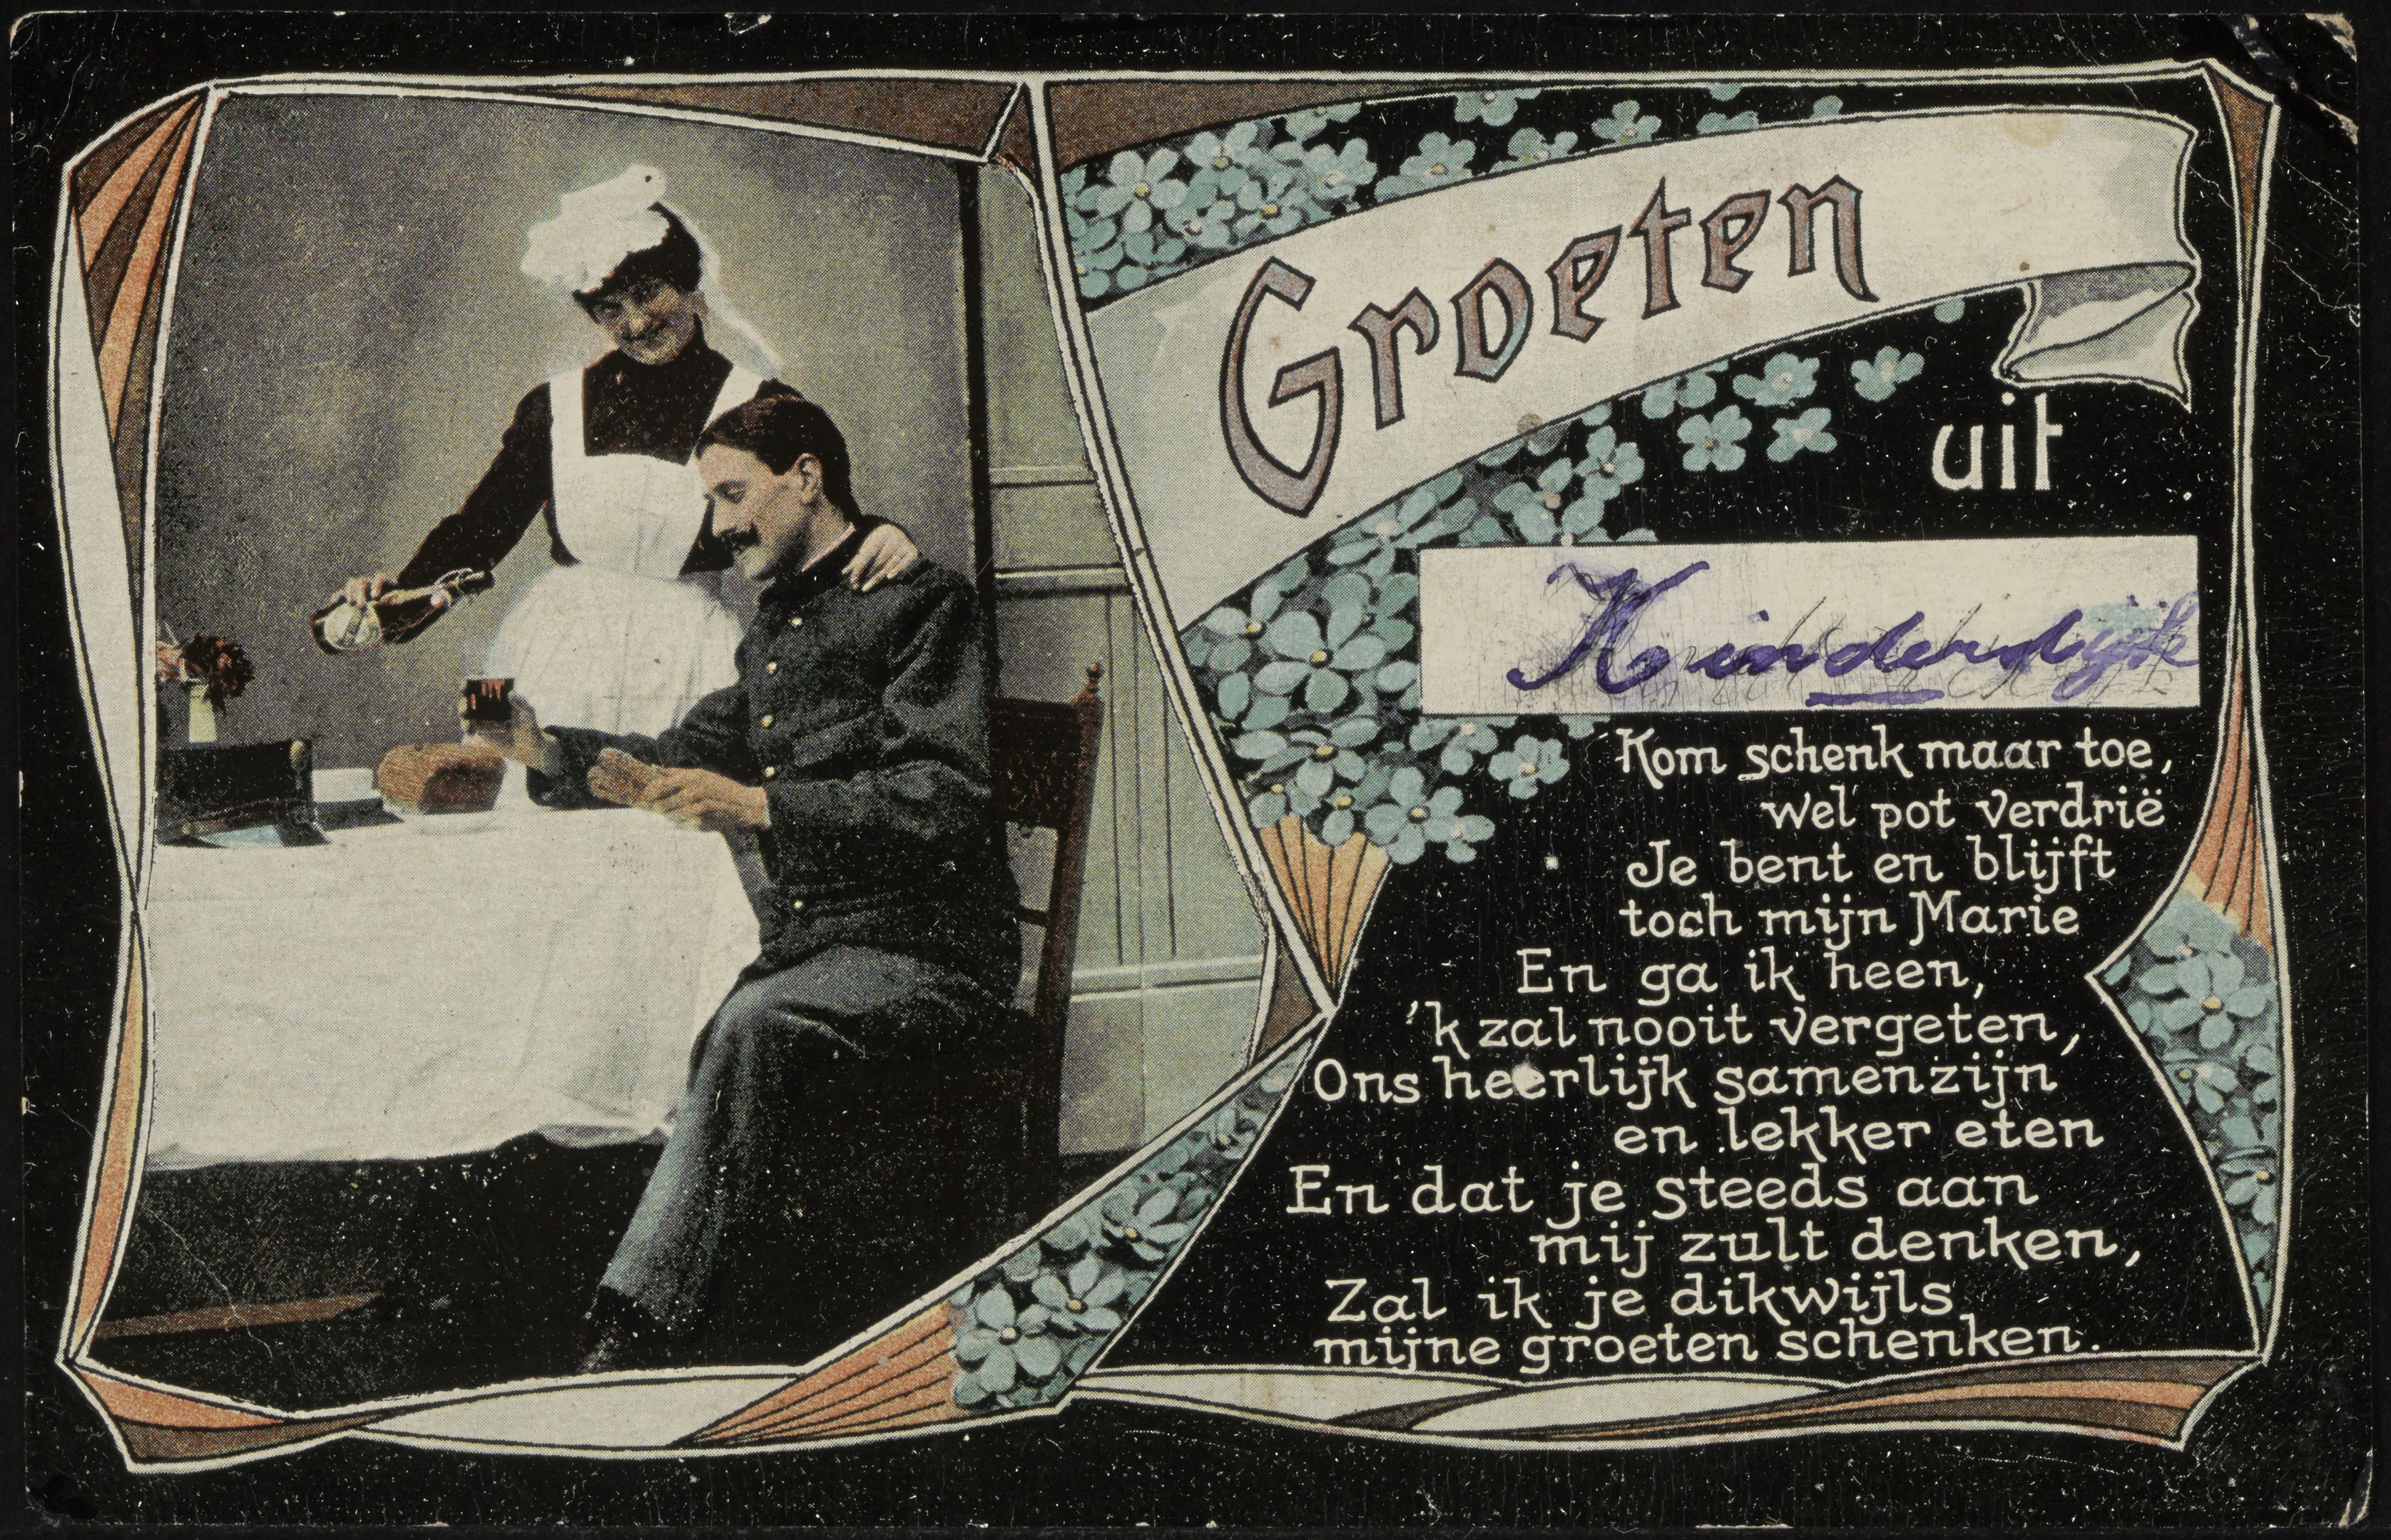 Groeten
uit
Kinderdijk
Kom schenk maar toe,
wel pot verdrië
Je bent en blijft
toch mijn Marie
En ga ik heen,
'k zal nooit vergeten,
Ons heerlijk samenzijn
en lekker eten
En dat je steeds aan
mij zult denken,
Zal ik je dikwijls
mijne groeten schenken.